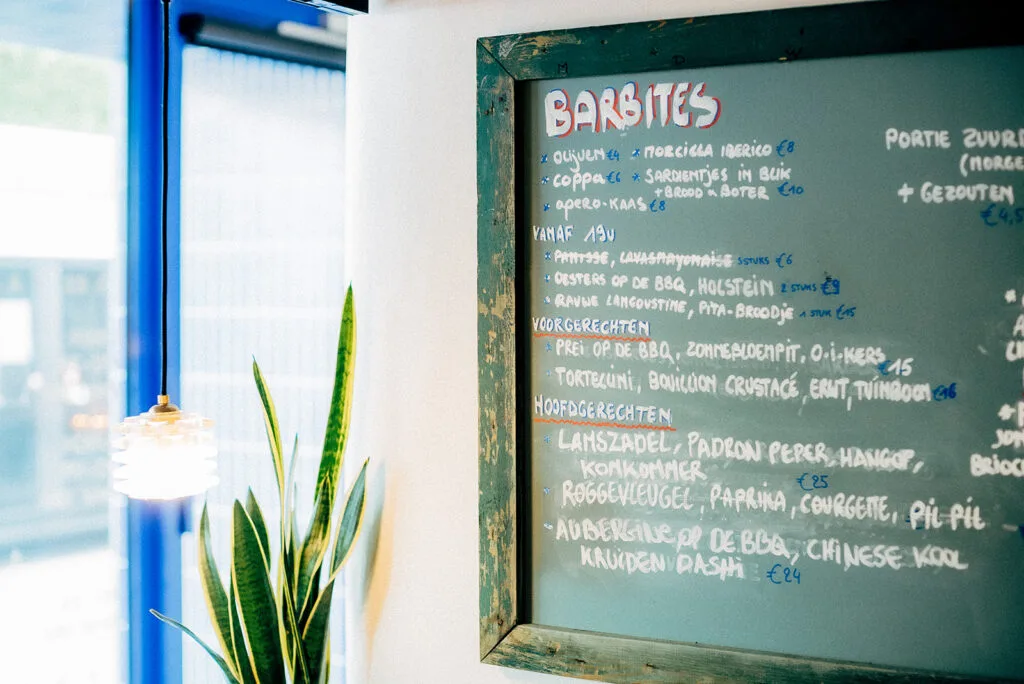 BARBITES
* OLIJVEN €4 * MORCILLA IBERICO €8
* COPPA €6 * SARDIENTJES IN BLIK
+ BROOD & BOTER €10
* APERO-KAAS €8
VANAF 19U
* PANISSE, LAVASMAYONAISE 5 STUKS €6
* OESTERS OP DE BBQ, HOLSTEIN 2 STUKS €9
* RAUWE LANGOUSTINE, PITA-BROODJE 1 STUK €15
VOORGERECHTEN
* PREI OP DE BBQ, ZONNEBLOEMPIT, O.I.-KERS €15
* TORTELLINI, BOUILLON CRUSTACÉ, ERWT, TUINBOON €16
HOOFDGERECHTEN
* LAMSZADEL, PADRON PEPER, HANGOP,
KOMKOMMER €25
* ROGGEVLEUGEL, PAPRIKA, COURGETTE, PIL PIL
* AUBERGINE OP DE BBQ, CHINESE KOOL
KRUIDEN DASHI €24
PORTIE ZUURD
(MORGE
+ GEZOUTEN
€4,5
BRIOC